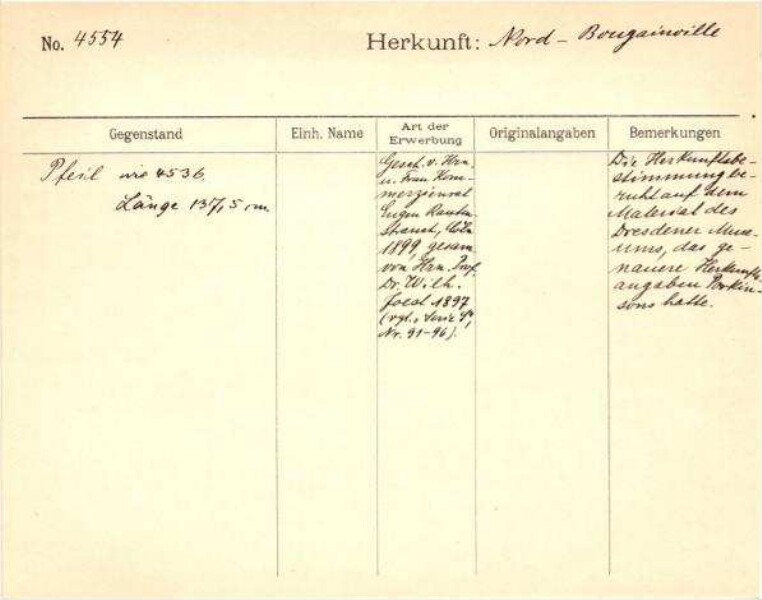 No. 4554
Herkunft: Nord - Bougainville
Gegenstand
Einh. Name
Art der
Erwerbung
Originalangaben
Bemerkungen
Pfeil wie 4536.
Länge 137,5 cm.
Gesch. v. Hrn.
u. Frau Kom-
merzienrat
Eugen Rauten-
strauch, Cöln
1899, gesam.
von Hrn. Prof.
Dr. Wilh.
Joest 1897
(vgl.
Nr. 91-96).
Die Herkunftsbe-
stimmung be-
ruht auf dem
Material des
Dresdener Muse-
ums, das ge-
nauere Herkunfts-
angaben Parkin-
sons hatte.